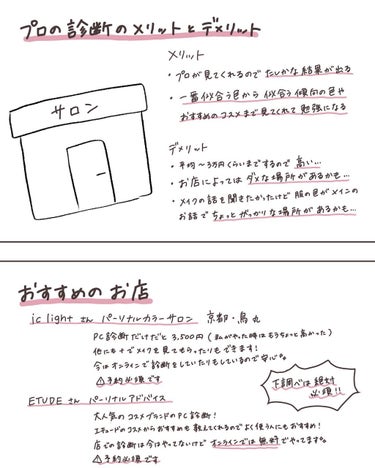 プロの診断のメリットとデメリット
メリット
・プロが見てくれるので たしかな結果が出る
・一番似合う色から 似合う傾向の色や
おすすめのコスメまで見てくれて 勉強になる
サロン
デメリット
・平均 〜3万円くらいまでするので 高い…
・お店によっては ダメな場所があるかも…
・メイクの話を聞きたかったけど 服の色がメインの
お話で ちょっとがっかりな場所があるかも…
おすすめのお店
ic light さん パーソナルカラーサロン 京都・烏丸
PC診断だけだと 3,500円(私がやった時はもうちょっと高かった)
他にも+でメイクを見てもらったりもできます!
今はオンラインで診断をしていたりもしているので安心。
⚠予約必須です
下調べは絶対
必須!!
ETUDE さん パーソナルアドバイス
大人気のコスメブランドのPC診断!
エチュードのコスメからおすすめも教えてくれるのでよく使う人にもおすすめ!
店での診断は今はやってないけど オンラインでは無料でやってます。
⚠予約必須です